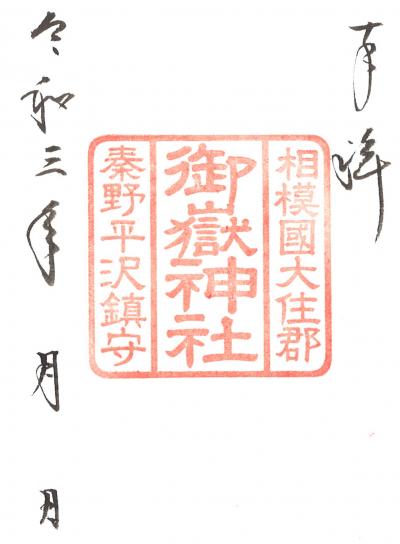 奉拝
相模國大住郡
御嶽神社
秦野平沢鎮守
令和三年 月 日